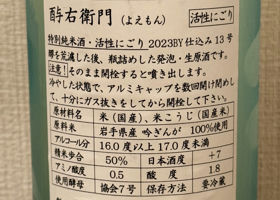 酉右衛門（よえもん） 活性にごり
特別純米酒・活性にごり 2023BY 仕込み13号
醪を荒濾した後、瓶詰めした発泡・生原酒です。
注意！そのまま開栓すると噴き出します。
冷やした状態で、アルミキャップを数回開け閉めし
て、十分にガス抜きをしてから開栓して下さい。
原材料名 米（国産）、米こうじ（国産米）
原料米 岩手県産 吟ぎんが 100%使用
アルコール分 16.0度以上17.0度未満
精米歩合 50% 日本酒度 +7
アミノ酸度 0.5 酸度 1.8
使用酵母 協会7号 保存方法 要冷蔵